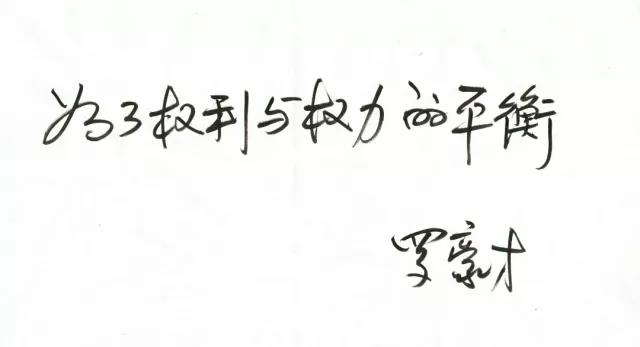 为了权利与权力的平衡
罗豪才